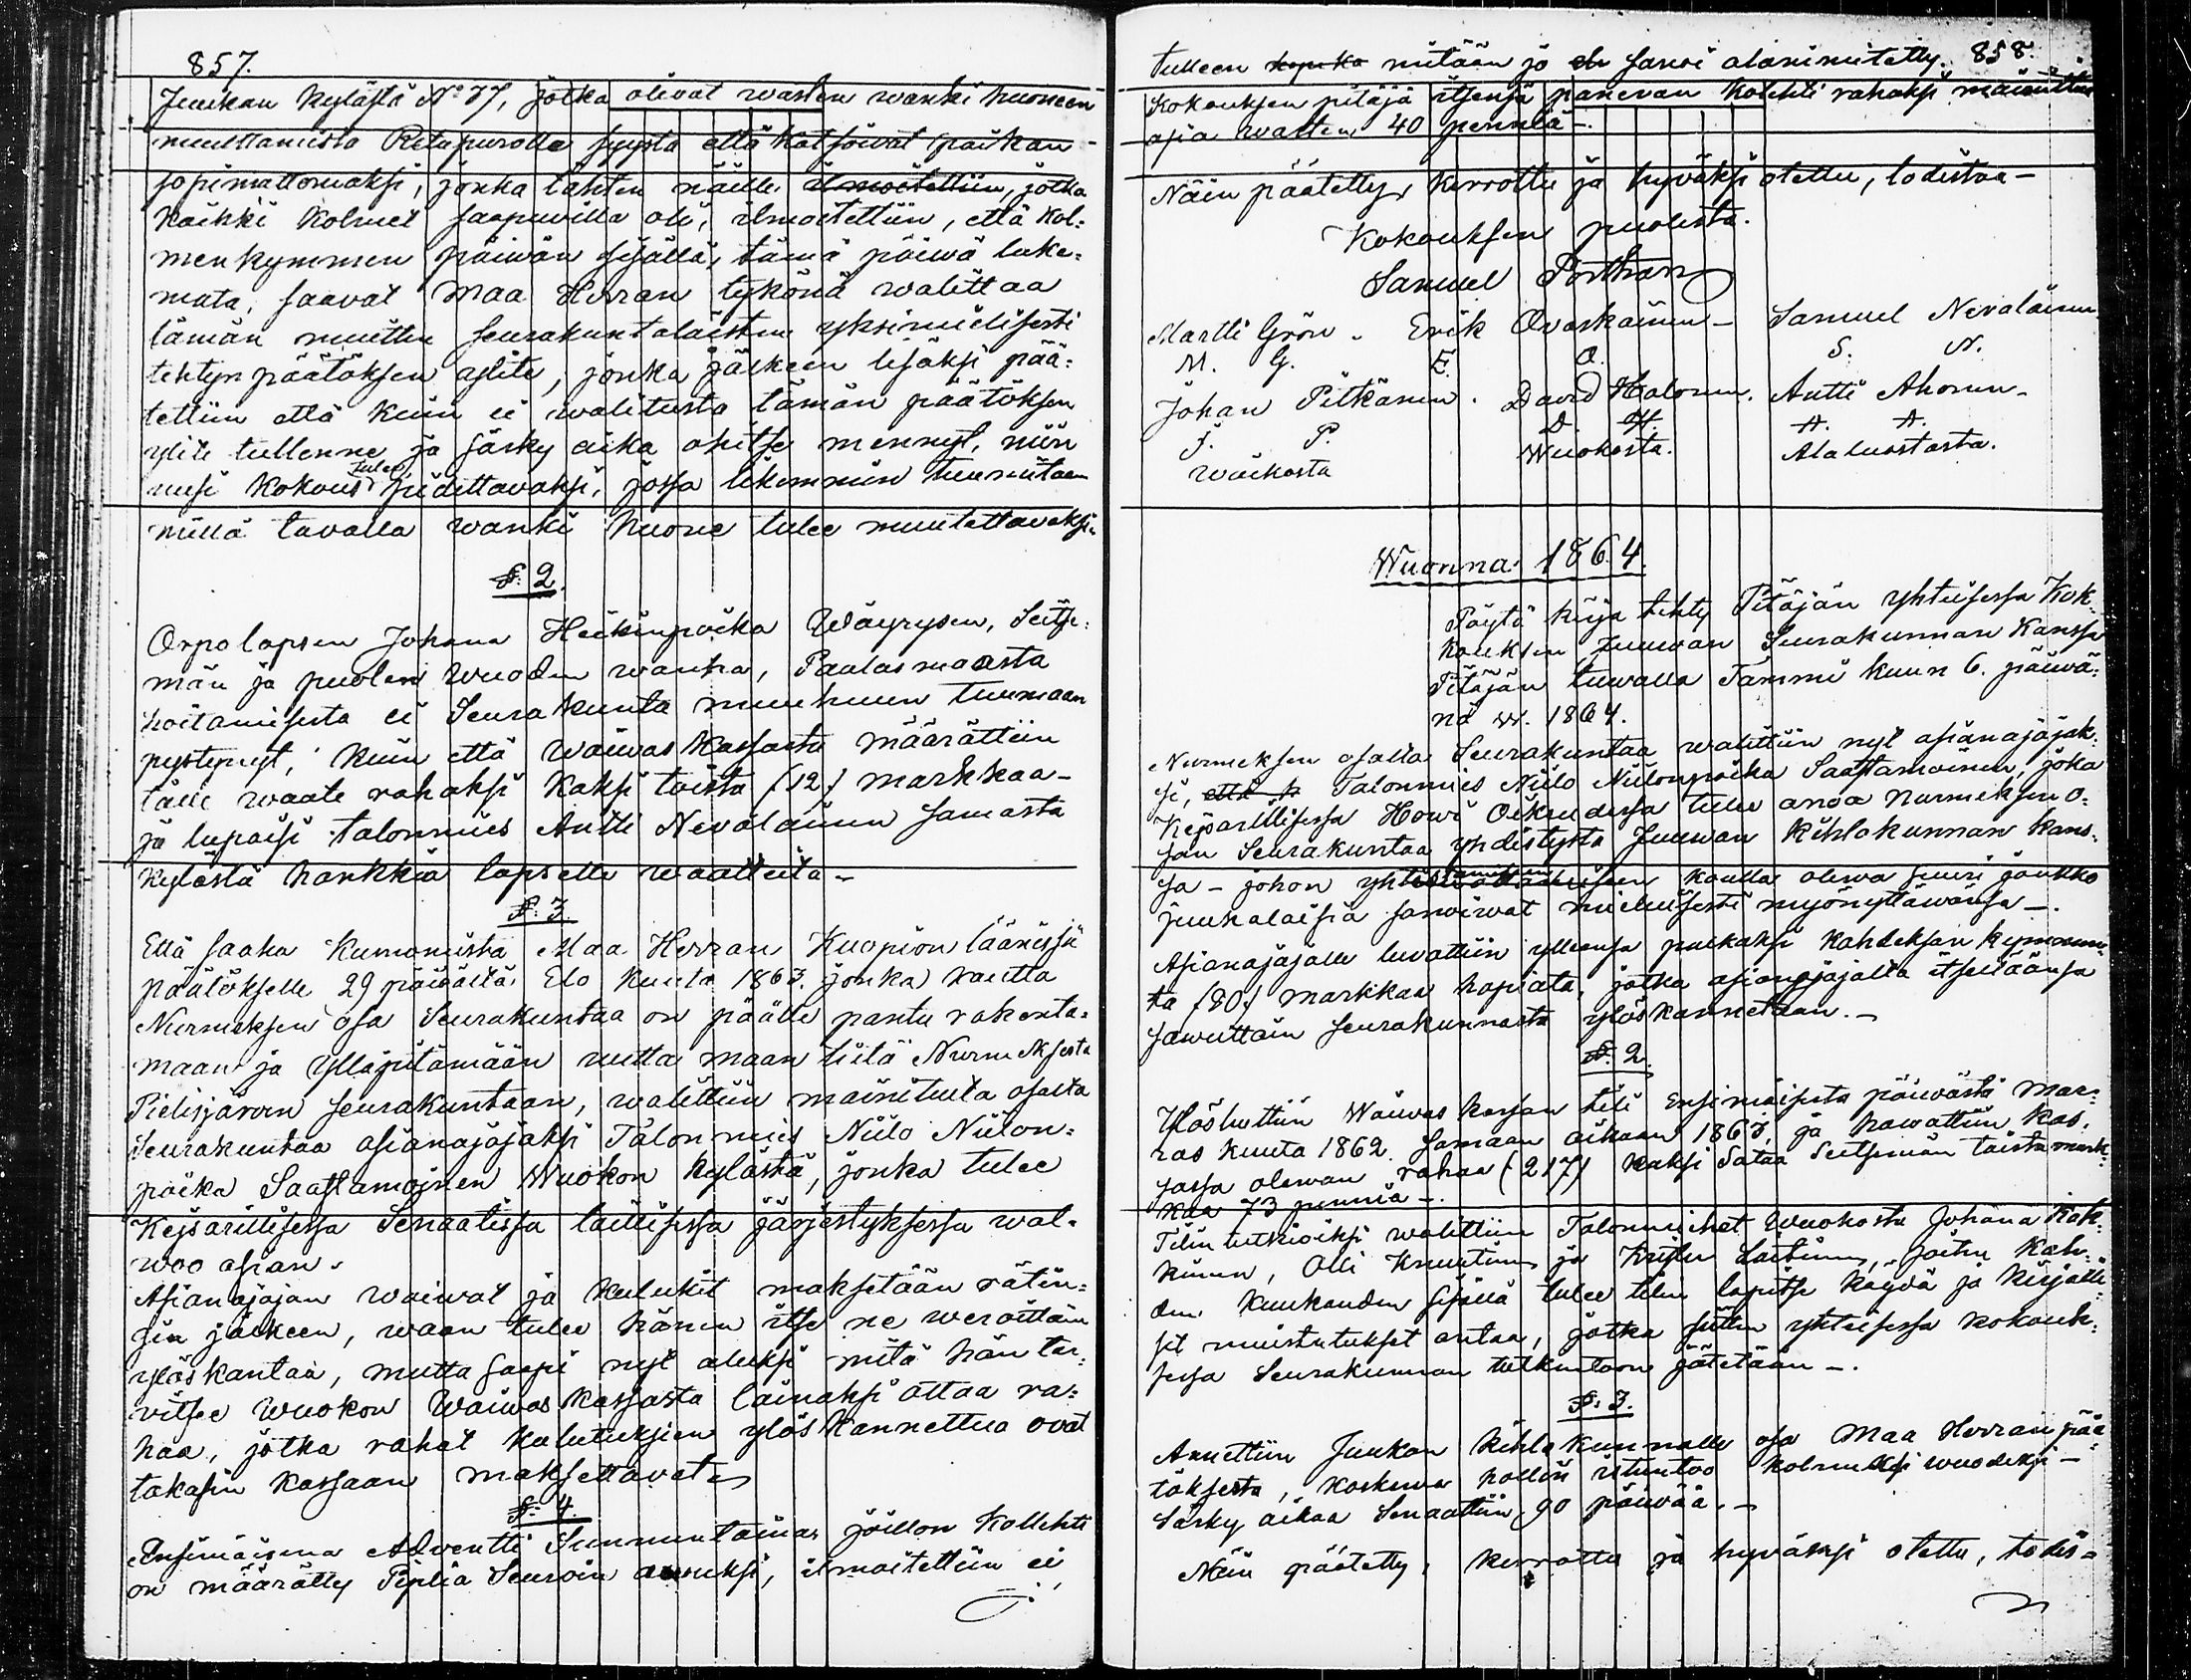 857.
Juukan kylästä No 37, jotka olivat wasten wanki huoneen
muuttamista Ritopurolle syystä että katsoivat paikan
sopimattomaksi, jonka tähten näille ilmoitettiin, jotka
kaikki kolmet saapuvilla oli, ilmoitettiin, että kol-
menkymmen päiwän sisällä, tämä päiwä luke-
mata, saavat Maa Herran tykönä walittaa
tämän muitten seurakuntalaisten yksimielisesti
tehtyn päätöksen ylite, jonka jälkeen lisäksi pää-
tettiin että kuin ei walitusta tämän päätöksen
ylite tullenne ja särky aika ohitse mennyt, niin
uusi kokous tulee piidettavaksi, jossa likemmin tuumitaan
millä tavalla wanki huone tulee muutettavaksi.
§: 2.
Orpolapsen Johana Heikinpoika Wäyrysen, Seitse-
män ja puolen wuoden wanha, Paalasmaasta
hoitamisesta ei Seurakunta muuhuun tuumaan
pystynyt, kuin että waiwas kassasta määrättiin
tälle waate rahaksi Kaksi toista (12) markkaa-
ja lupaisi talonmies Antti Nevalainen samasta
kylästä hankkia lapselle waatteita -
§: 3.
Että saaha kumomista Maa Herran Kuopion läänissä
päätökselle 29 päiwältä Elo kuuta 1863. jonka kautta
Nurmeksen osa Seurakuntaa on päälle pantu rakenta-
maan ja ylläpitämään uutta maan tiitä Nurmeksesta
Pielisjärven seurakuntaan, walittiin mainitulta osalta
Seurakuntaa asianajajaksi Talonmies Niilo Niilon-
poika Saastamoinen Wuokon kylästä, jonka tulee
Keisarillisessa Senaatissa laillisessa järjestyksessä wal-
woo asian.
Asianajajan waiwat ja kulukit maksetaan rätin-
sin jälkeen, waan tulee hänen itse ne weroittain
ylöskantaa, mutta saapi nyt aluksi mitä hän tar-
vitsee Wuokon Waiwas kassasta lainaksi ottaa ra-
haa, jotka rahat kulutuksien ylöskannettua ovat
takasin kassaan maksettavat.
§: 4.
Ensimäisenä Adventti Sunnuntaina, joillon Kollehti
on määrätty Piplia Seuroin avuksi, ilmoitettiin ei
858.
tulleen kopika mitään ja eh sanoi alanimitetty.
Kokouksen pitäjä itsensä panevan kolehti rahaksi mainittua
asia wasten 40 penniä -.
Näin päätetty, kerrottu ja hyväksi otettu, todistaa -
Kokouksen puolesta.
Samuel Porthan
Martti Grön. Erik Ovaskainen - Samuel Nevalainen
M. G. E. O. S. N.
Johan Pitkänen. David Halonen. Antti Ahonen -
J. P. D. H. A. A.
Wuokosta Wuokosta. Alaluostasta.
Wuonna 1864.
Pöytä kirja tehty Pitäjän yhteisessa Kok-
kouksen Juuwan Seurakunnan kanssa
Pitäjän tuwalla Tammi kuun 6. päiwä-
nä w. 1864.
Nurmeksen osalta Seurakuntaa walittiin nyt asianajajak-
si, että h Talonmies Niilo Niilonpoika Saastamoinen, joka
Keisarillisessa Howi Oikeudessa tulee anoa Nurmeksen o-
san Seurakuntaa yhdistystä Juuwan kihlakunnan kans-
sa - johon kaulla olewa suuri joukko
juukalaisia sanoiwat mielusesti myönyttäwänsä -.
Asianajajalle luvattiin yllensa palkaksi Kahdeksan kymmenn-
tä (80) markkaa hopiata, jotka asianajajalta itseltäänsä
sawuttain seurakunnasta ylöskannetaan. -
§: 2.
Ylösluttiin Waiwas kassan tili ensimäisestä päiwästä Mar-
ras kuuta 1862 samaan aikaan 1863, ja hawattiin kas-
sassa olewan rahaa (217) Kaksi Sataa Seitsemän toista mark-
kaa 73 penniä -.
Tilin tutkioiksi walittiin Talonmiehet Wuokosta Johana Kok-
kinen, Olli Knuutinen ja Laitinen, joitten kah-
den kuukauden sisällä tulee tilin lapitse käydä ja kirjalli-
set muistutukset antaa, jotka sitten yhteisessa kokouk-
sessa Seurakunnan tutkintoon jätetään -.
§: 3.
Annettiin Juukan kihlakunnalle osa Maa Herran pää-
töksestä, koskewa hollin istuntoo kolmeksi wuodeksi -
Särky aikaa Senaattiin 90 päiwää. -
Näin päätetty, kerrottu ja hyväksi otettu, todis-